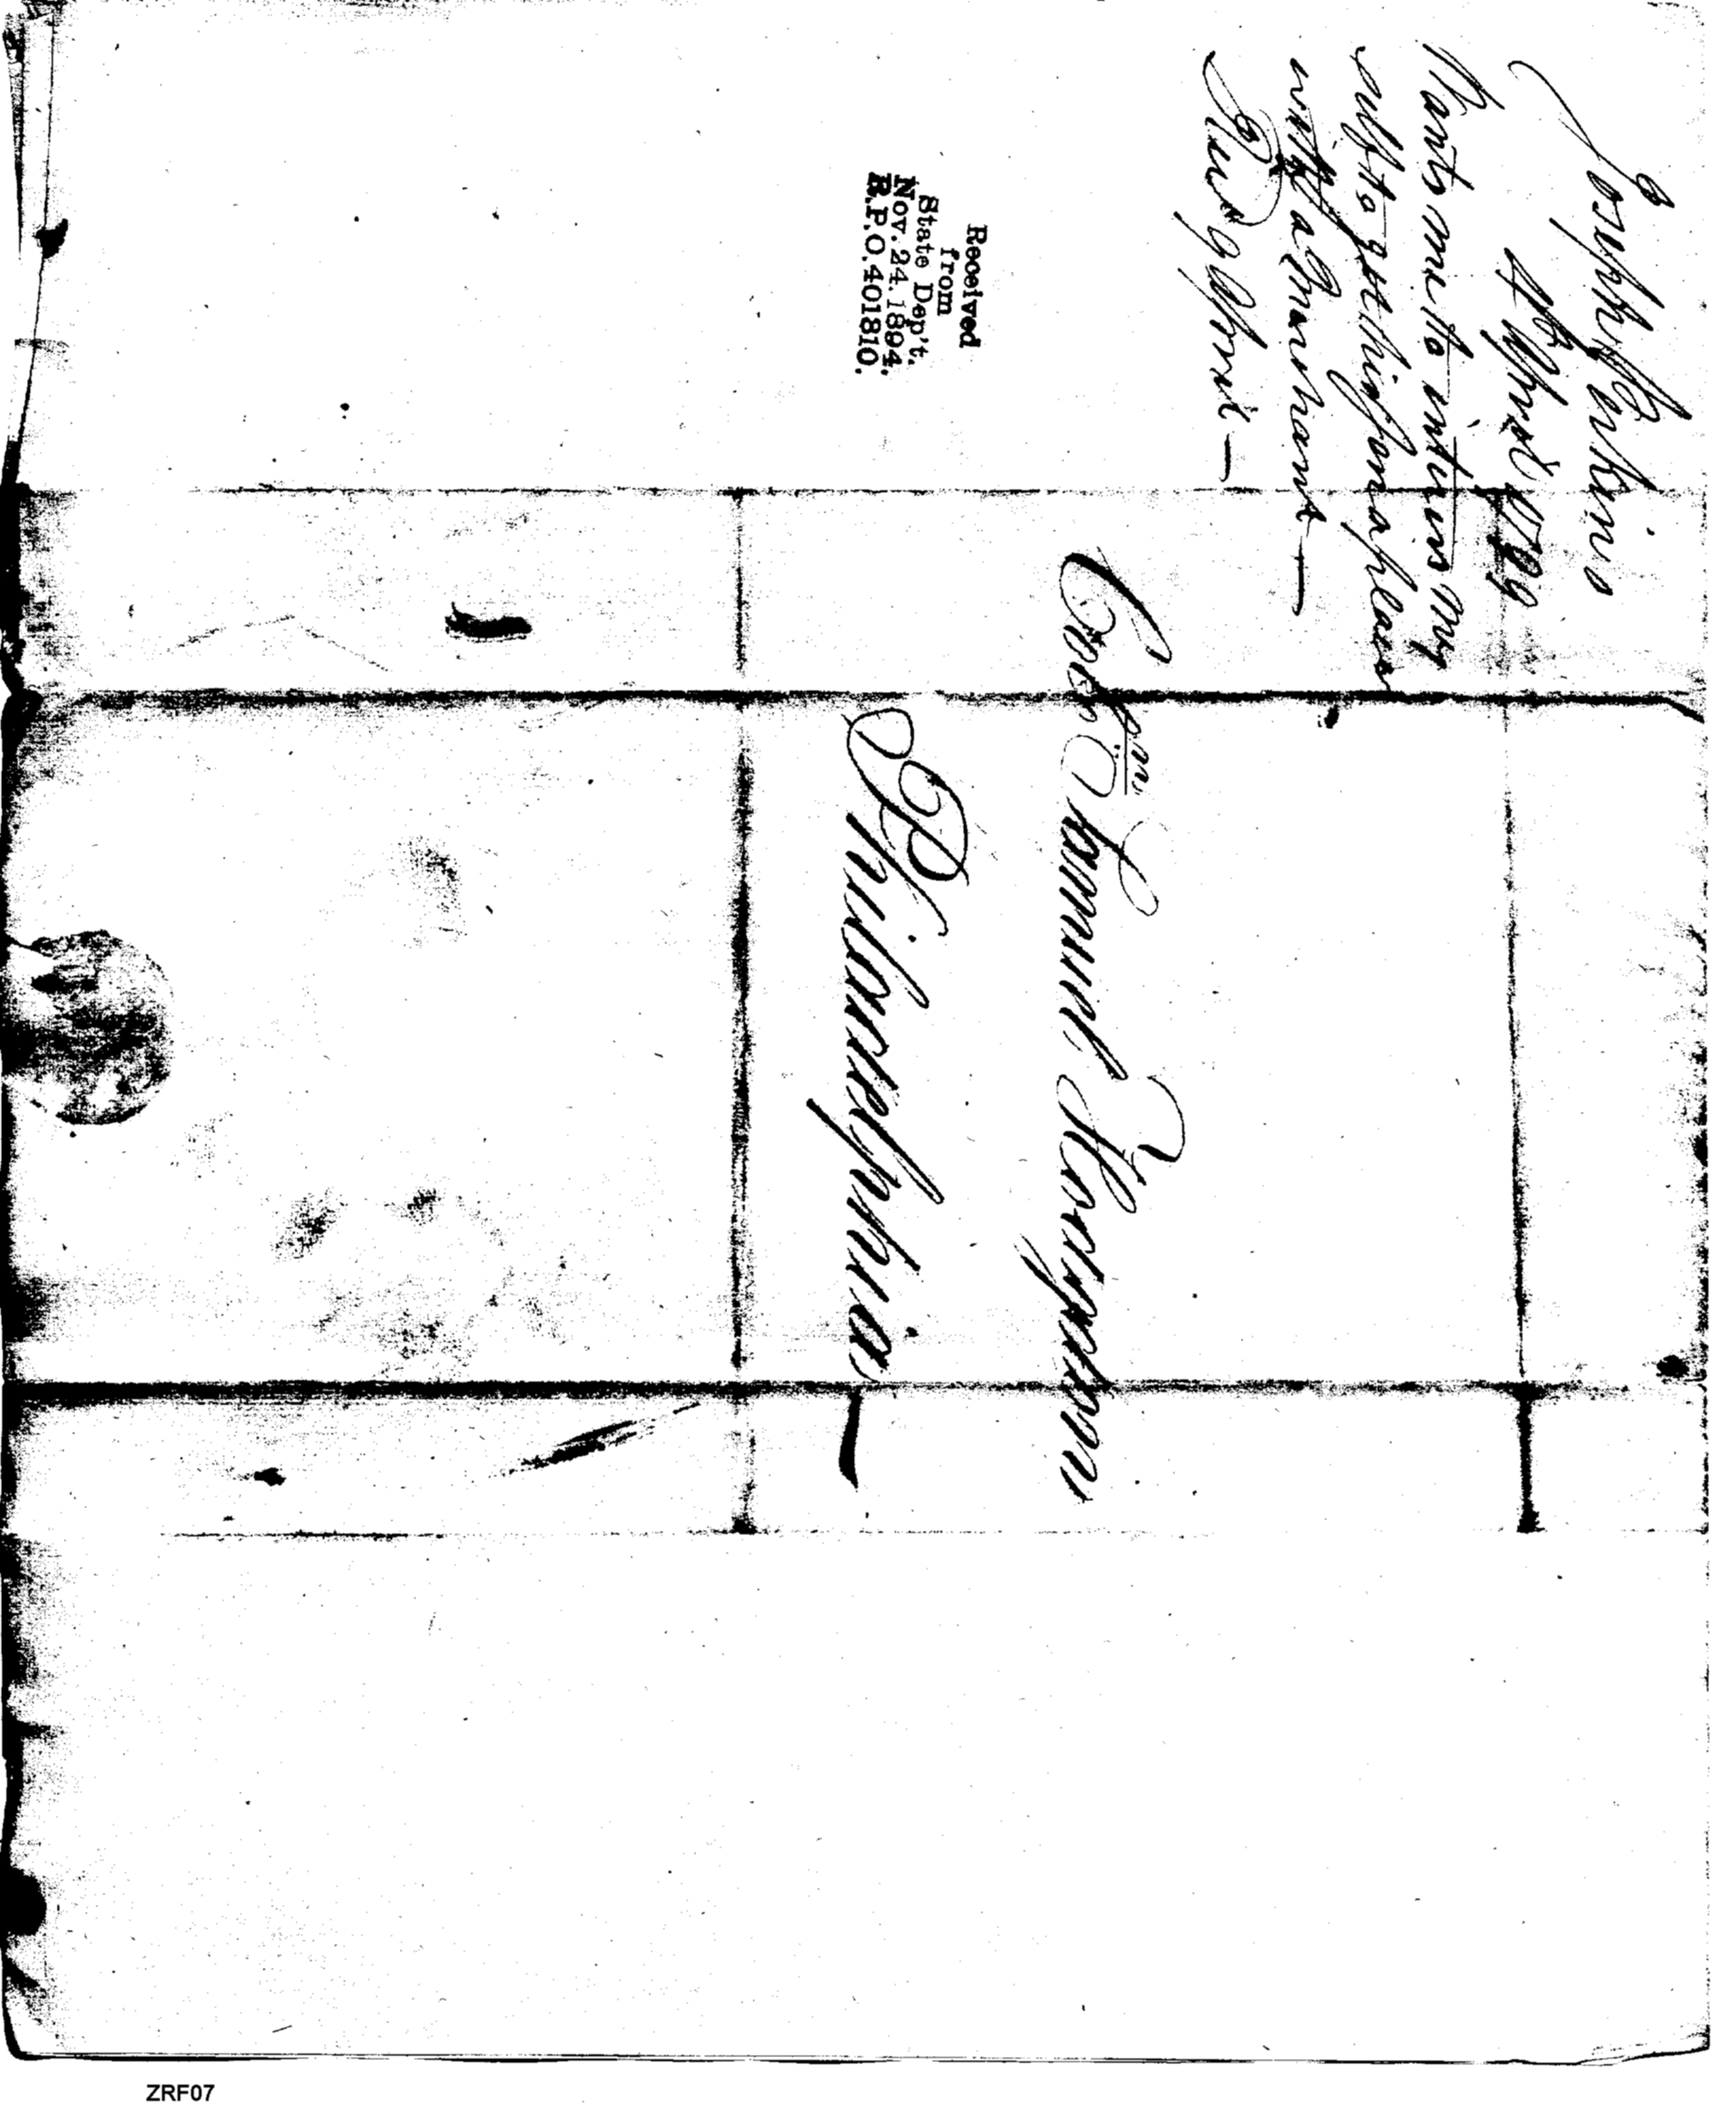 Joseph Perkins
4th April 1799
Wants me to interis my
self to get him a place
with a Merchant —
Recd 9 April —
Received
from
State Dep't.
Nov. 24. 1894.
R.P.O. 401810.
Captn Samuel Hodgdon
Philadelphia —
ZRF07